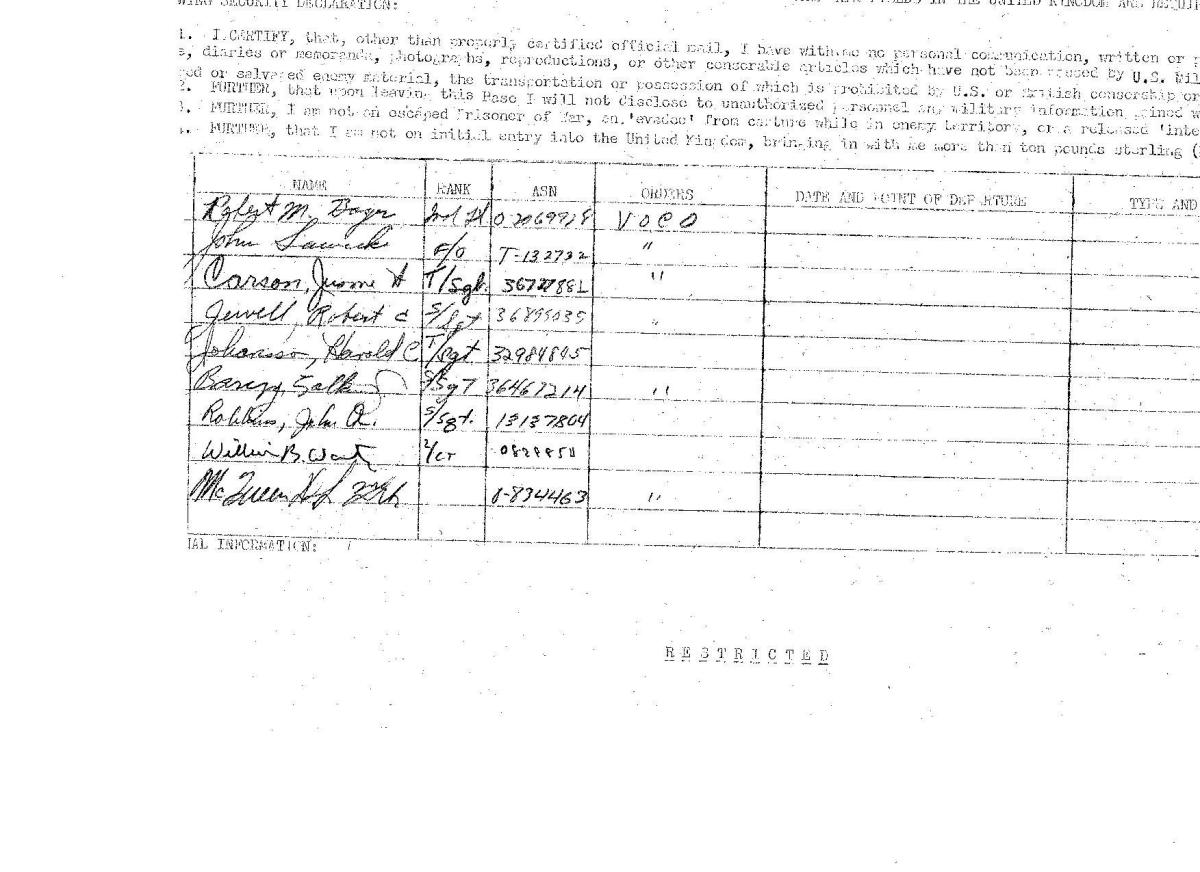 WING SECURITY DECLARATION: IN THE UNITED KINGDOM ARE REQUI
1. I CERTIFY, that, other than properly certified official mail, I have with me no personal communication, written or p
s, diaries or memoranda, photographs, reproductions, or other censorable articles which have not been passed by U.S. Mil
red or salvaged enemy material, the transportation or possession of which is prohibited by U.S. or British censorship or
2. FURTHER, that upon leaving this Base I will not disclose to unauthorized personnel any military information gained w
3. FURTHER, I am not an escaped Prisoner of War, an 'evadee' from capture while in enemy territory, or a released 'inte
4. FURTHER, that I am not on initial entry into the United Kingdom, bringing in with me more than ten pounds sterling (
NAME RANK ASN ORDERS DATE AND POINT OF DEPARTURE TYPE AND
Robert M. 2nd Lt V O C O
John F/O T-132732 "
Carson, Jerome H T/Sgt. "
Jewell, Robert C S/Sgt 36895035 "
Johansson, Harold C T/Sgt 32984845
S/Sgt 36467214 "
Robbins, John S/Sgt. 13137804
William B.
McQueen 0-834463 "
IAL INFORMATION: /
RESTRICTED